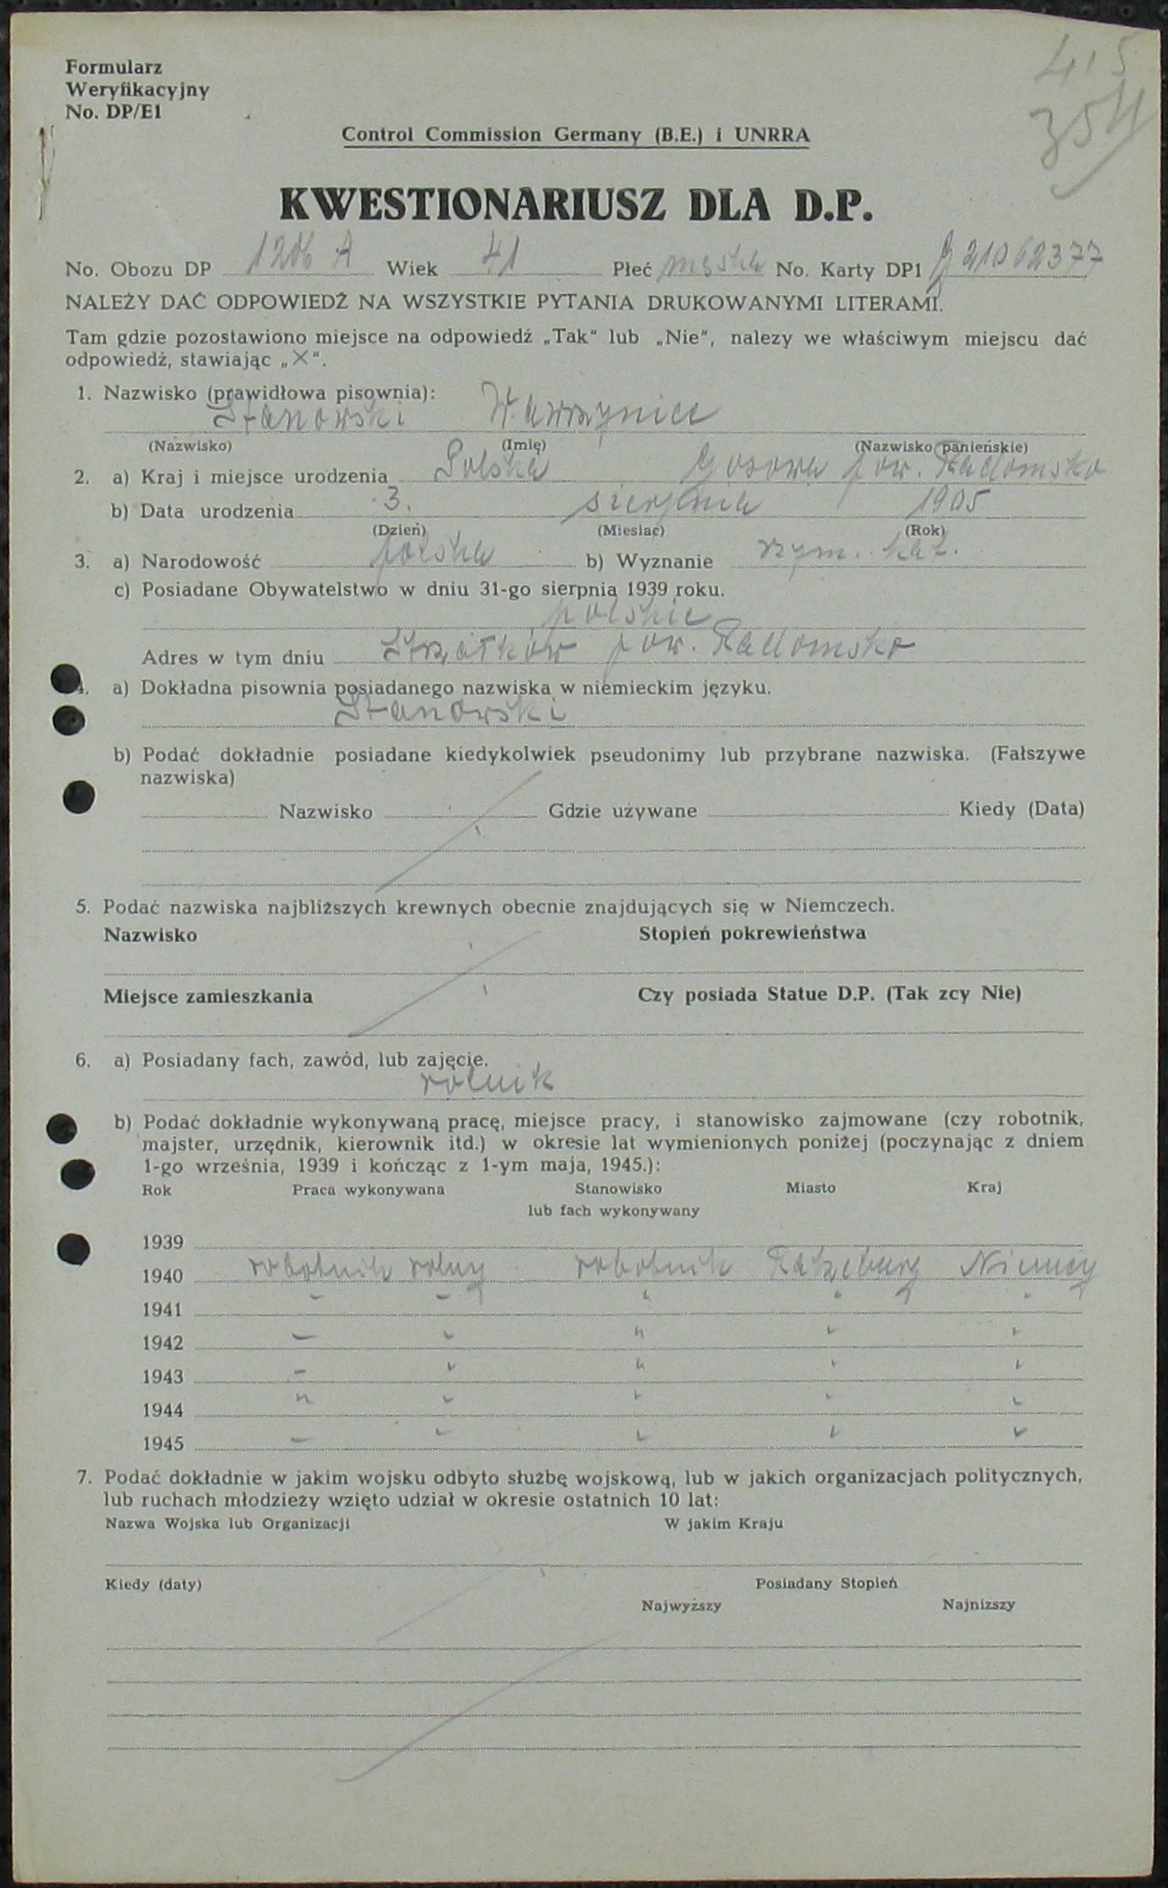 415
354
Formularz
Weryfikacyjny
No. DP/E1
Control Commission Germany (B.E.) i UNRRA
KWESTIONARIUSZ DLA D.P.
No. Obozu DP 1206 A Wiek 41 Płeć męska No. Karty DP1 G 21062377
NALEŻY DAĆ ODPOWIEDŹ NA WSZYSTKIE PYTANIA DRUKOWANYMI LITERAMI.
Tam gdzie pozostawiono miejsce na odpowiedź „Tak" lub „Nie", nalezy we właściwym miejscu dać
odpowiedź, stawiając „X".
1. Nazwisko (prawidłowa pisownia):
Stanowski Wawrzyniec
(Nazwisko) (Imię) (Nazwisko panieńskie)
2. a) Kraj i miejsce urodzenia Polska pow. Radomsko
b) Data urodzenia 3. sierpnia 1905
(Dzień) (Miesiąc) (Rok)
3. a) Narodowość polska b) Wyznanie rzym. kat.
c) Posiadane Obywatelstwo w dniu 31-go sierpnia 1939 roku.
polskie
Adres w tym dniu Strzałków pow. Radomsko
4. a) Dokładna pisownia posiadanego nazwiska w niemieckim języku.
Stanowski
b) Podać dokładnie posiadane kiedykolwiek pseudonimy lub przybrane nazwiska. (Fałszywe
nazwiska)
Nazwisko Gdzie używane Kiedy (Data)
5. Podać nazwiska najbliższych krewnych obecnie znajdujących się w Niemczech.
Nazwisko Stopień pokrewieństwa
Miejsce zamieszkania Czy posiada Statue D.P. (Tak zcy Nie)
6. a) Posiadany fach, zawód, lub zajęcie.
rolnik
b) Podać dokładnie wykonywaną pracę, miejsce pracy, i stanowisko zajmowane (czy robotnik,
majster, urzędnik, kierownik itd.) w okresie lat wymienionych poniżej (poczynając z dniem
1-go września, 1939 i kończąc z 1-ym maja, 1945.):
Rok Praca wykonywana Stanowisko Miasto Kraj
lub fach wykonywany
1939
1940 robotnik rolny robotnik Ratzeburg Niemcy
1941 " " " " "
1942 " " " " "
1943 " " " " "
1944 " " " " "
1945 " " " " "
7. Podać dokładnie w jakim wojsku odbyto służbę wojskową, lub w jakich organizacjach politycznych,
lub ruchach młodzieży wzięto udział w okresie ostatnich 10 lat:
Nazwa Wojska lub Organizacji W jakim Kraju
Kiedy (daty) Posiadany Stopień
Najwyższy Najniższy